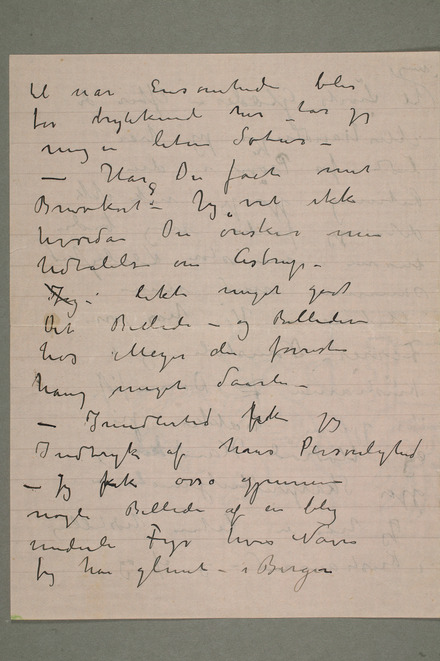 til naar Ensomheden blev
for trykkende her – tar jeg
mig en liten Sotur –
– Har Du faaet mit
Brevkort? – Jeg vet ikke
hvordan Du ønsker min
Udtalelse om Astrup –
Jeg likte meget godt
det Billede – og Billederne
hos Meyer der forresten
hang meget daarlig –
– Imidlertid fik jeg
Indtryk af hans Personlighed
– Jeg fik ogsaa gjennem
nogle Billeder af en
underlig Fyr hvis Navn
jeg har glemt – i Bergen